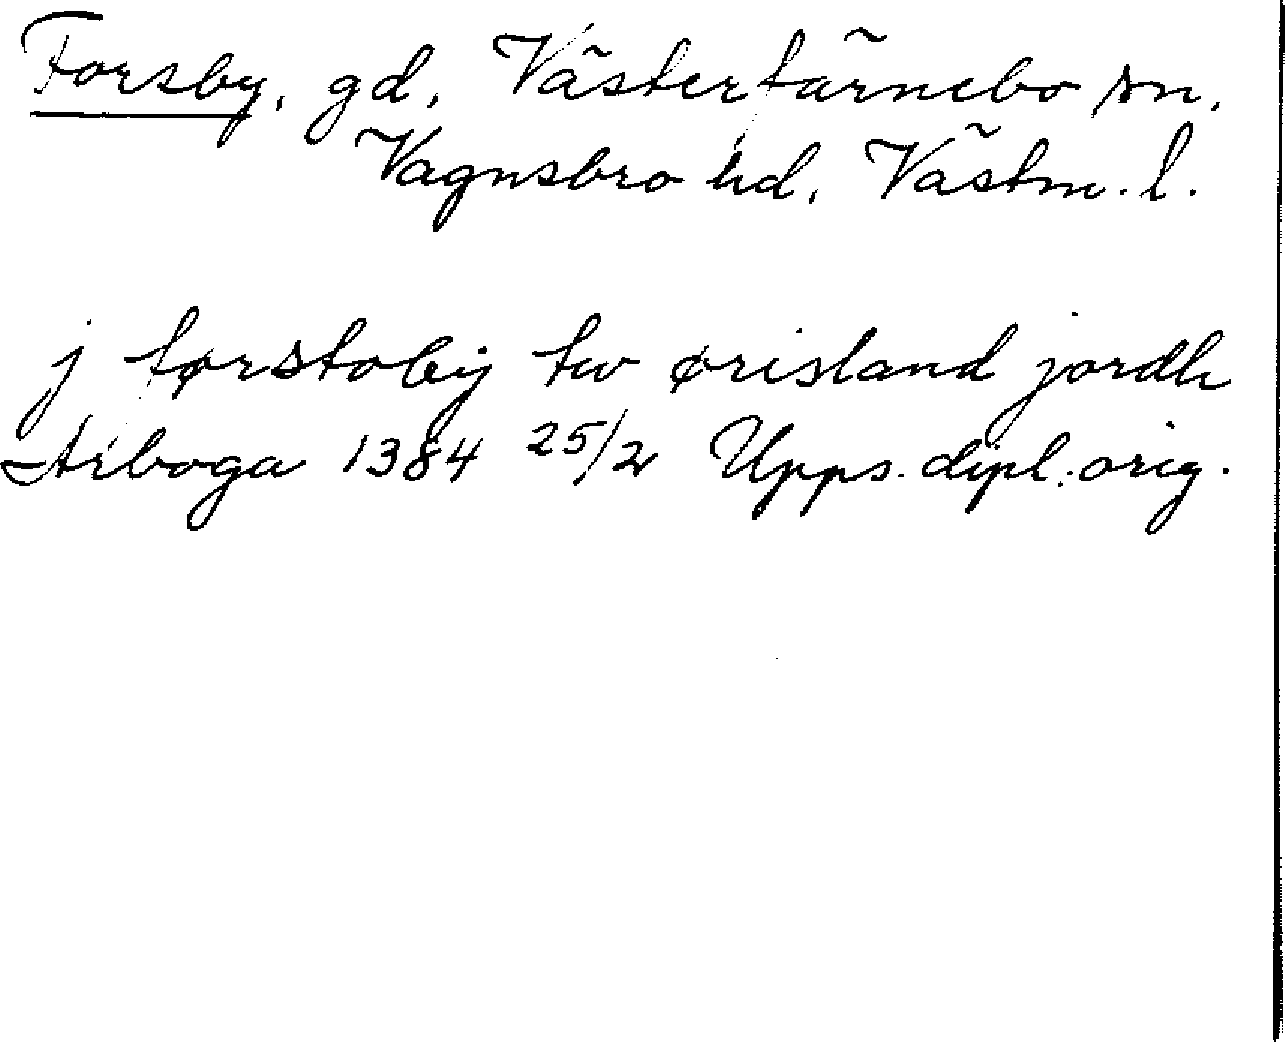 Forsby, gd, Västerfärnebo sn.
Vagnsbro hd, Västm. l.
j førstoby tw ørisland jordh
Arboga 1384 25/2 Upps. dipl. orig.